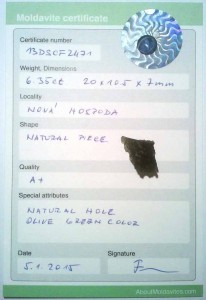 Moldavite certificate
Certificate number
13DSCF2471
Weight, Dimensions
6.35ct 20x10.5x7mm
Locality
NOVÁ HOSPODA
Shape
NATURAL PIECE
Quality
A+
Special attributes
NATURAL HOLE
OLIVE GREEN COLOR
Date
Signature
5.1.2015